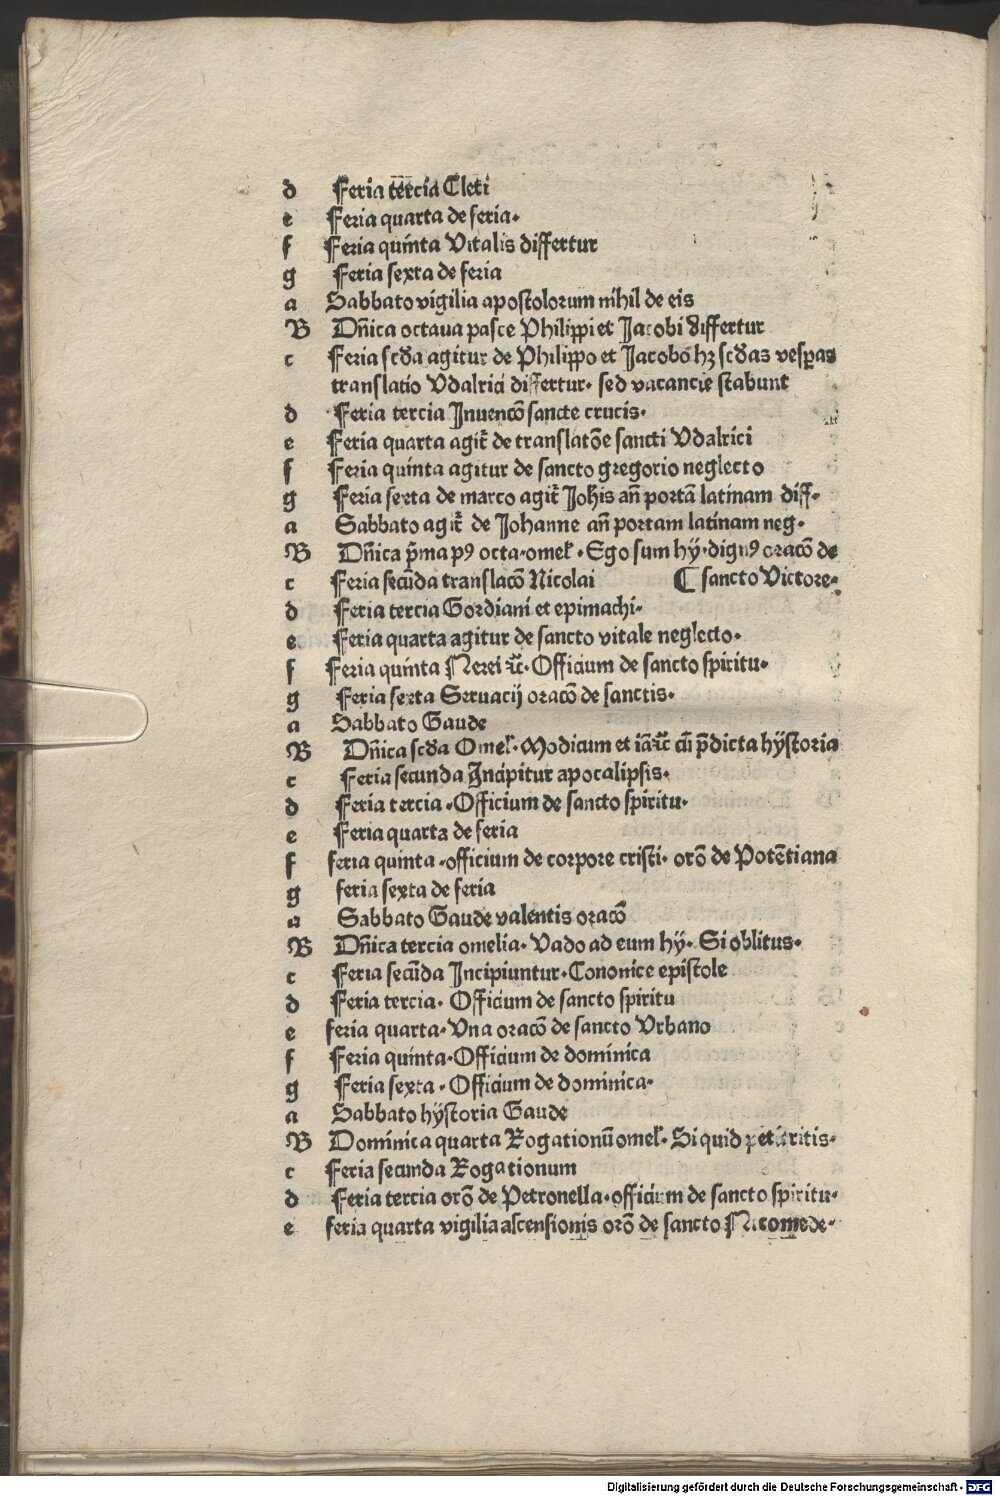 d Feria tercia Cleti
e Feria quarta de feria.
f Feria quinta Vitalis differtur
g Feria sexta de feria
a Sabbato vigilia apostolorum nihil de eis
B Dñica octaua pasce Philippi et Jacobi differtur
c Feria scďa agitur de Philippo et Jacobo hꝫ scďas vesꝑas
translatio Vdalrici differtur. sed vacancie stabunt
d Feria tercia Inuencõ sancte crucis.
e Feria quarta agit᷑ de translatõe sancti Vdalrici
f Feria quinta agitur de sancto gregorio neglecto
g Feria sexta de marco agit᷑ Joħis añ portã latinam diff.
a Sabbato agit᷑ de Johanne añ portam latinam neg.
B Dñica p̃ma pꝰ octa. omeł. Ego sum hÿ. dignꝰ oracõ de
c Feria secũda translacõ Nicolai ⸿ sancto Victore.
d Feria tercia Gordiani et epimachi.
e Feria quarta agitur de sancto vitale neglecto.
f Feria quinta Nerei ꝛc̃. Officium de sancto spiritu.
g Feria sexta Seruacij oracõ de sanctis.
a Sabbato Gaude
B Dñica scďa Omeł. Modicum et iã ꝛc̃ cũ p̃dicta hÿstoria
c Feria secunda Incipitur apocalipsis.
d Feria tercia. Officium de sancto spiritu.
e Feria quarta de feria
f feria quinta. officium de corpore cristi. orõ de Potẽtiana
g feria sexta de feria
a Sabbato Gaude valentis oracõ
B Dñica tercia omelia. Vado ad eum hÿ. Si oblitus.
c Feria secũda Incipiuntur. Cononice epistole
d Feria tercia. Officium de sancto spiritu
e feria quarta. Vna oracõ de sancto Vrbano
f Feria quinta. Officium de dominica
g Feria sexta. Officium de dominica.
a Sabbato hÿstoria Gaude
B Dominica quarta Rogationũ omeł. Si quid petieritis.
c Feria secunda Rogationum
d Feria tercia orõ de Petronella. officium de sancto spiritu.
e feria quarta vigilia ascensionis orõ de sancto Nicomede.
Digitalisierung gefördert durch die Deutsche Forschungsgemeinschaft - DFG